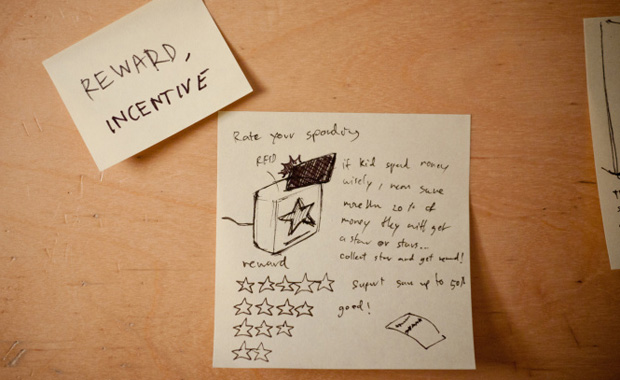 REWARD,
INCENTIVE
Rate your spending
RFID
if kid spend money
wisely, mean save
more than 20% of
money they will get
a star or stars...
collect star and get reward!
reward
save up to 50%
good!